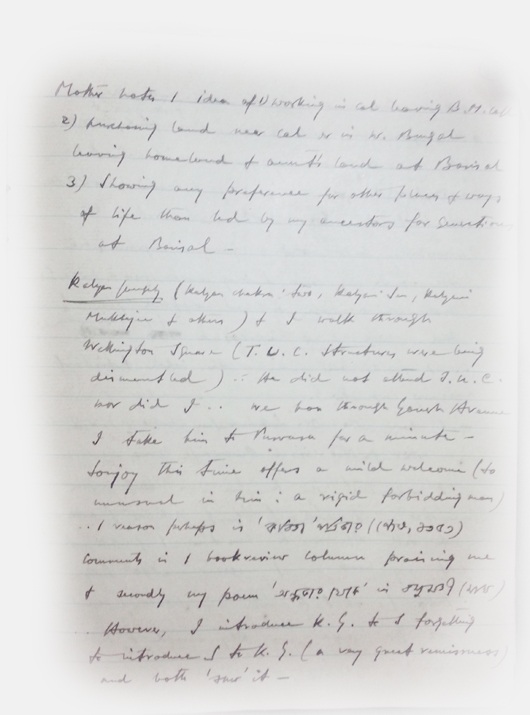 Mother hates / idea of 1) working in cal leaving B.M. Col
2) Purchasing land near cal or in W. Bengal
leaving homeland & aunt's land at Barisal
3) Showing any preference for other places & ways
of life than led by my ancestors for generations
at Barisal —
Kalyan (Kalyan, Kalyan Sen, Kalyani
Mukherjee & others) & I walk through
Wellington Square (T.U.C. structures were being
dismantled) .. He did not attend T.U.C.
nor did I .. we through Ganesh Avenue
I take him to Purvasa for a minute —
Sonjoy this time offers a mild welcome (so
unusual in him : a rigid forbidding man)
.. / reason perhaps is
comments in / bookreview column praising me
& secondly my poem in
.. However, I introduce K.G. to S forgetting
to introduce S to K.G. (a very great remissness)
and both 'saw' it —